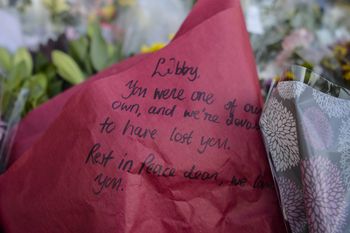 Libby,
You were one of our
own, and we're
to have lost you.
Rest in Peace dear, we
you.